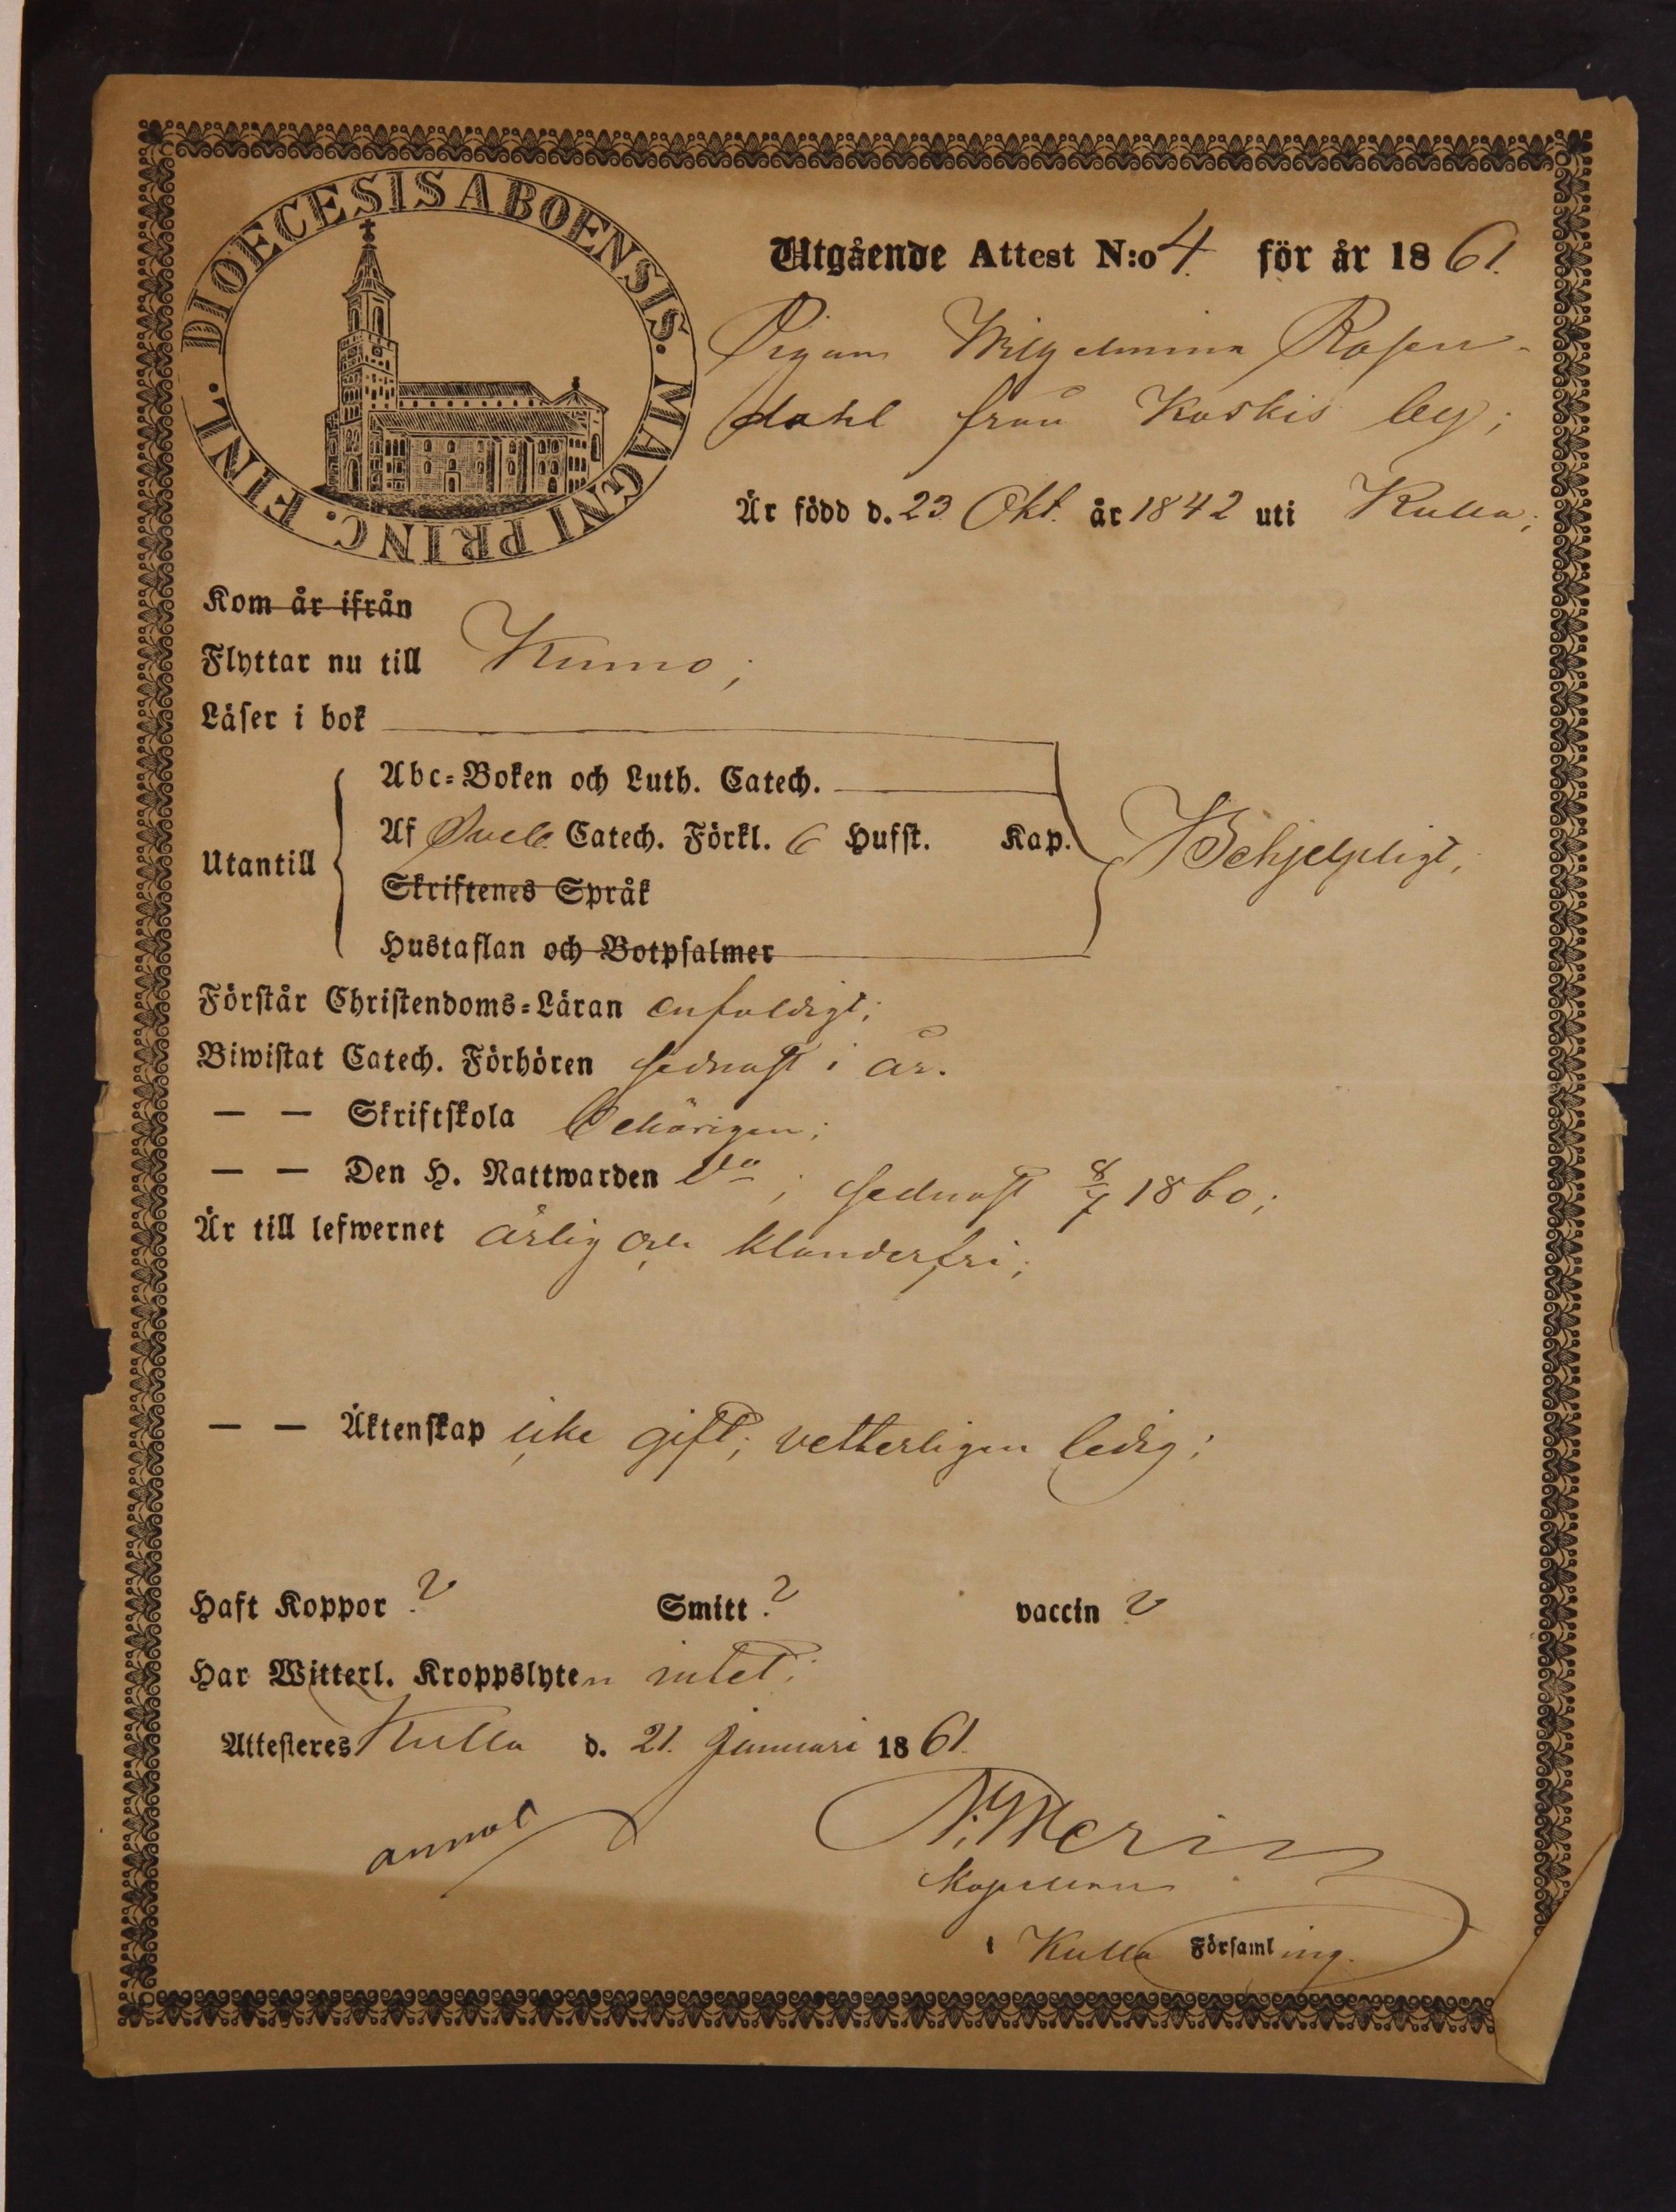 DIOECESIS ABOENSIS. MAGNI PRINC. FINL.
Utgående Attest N:o 4. för år 1861.
Pigan Wilhelmina Rosen-
dahl från Koskis by;
Är född d. 23 Okt. år 1842 uti Kulla;
Kom år ifrån
Flyttar nu till Kumo;
Läser i bok
Abc-Boken och Luth. Catech.
Af Sveb. Catech. Förkl. 6 Hufst. Kap.
Utantill
Behjelpligt;
Skriftenes Språk
Hustaflan och Botpsalmer
Förstår Christendoms-Läran enfaldigt;
Biwistat Catech. Förhören sednast i år.
— — Skriftskola behörigen;
— — Den H. Nattwarden do; sednast 8/7 1860;
Är till lefwernet ärlig och klanderfri;
— — Äktenskap icke gift; vetterligen ledig;
Haft Koppor ? Smitt ? vaccin ?
Har Witterl. Kroppslyten intet;
Attesteres Kulla d. 21. Januari 1861.
anmäl
N. Merin
Kapellan
i Kulla Församling.